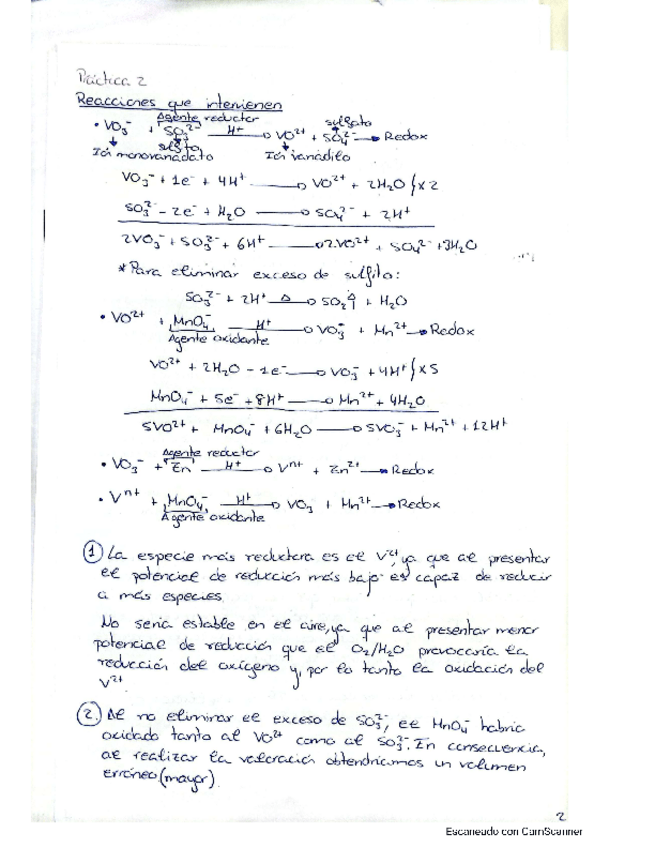 Práctica 2
Reacciones que intervienen
Agente reductor sulfato
• VO₃⁻ + SO₃²⁻ —H⁺→ VO²⁺ + SO₄²⁻ → Redox
↓ sulfito ↓
Ión monovanadato Ión vanadilo
VO₃⁻ + 1e⁻ + 4H⁺ → VO²⁺ + 2H₂O } x2
SO₃²⁻ - 2e⁻ + H₂O → SO₄²⁻ + 2H⁺
2VO₃⁻ + SO₃²⁻ + 6H⁺ → 2VO²⁺ + SO₄²⁻ + 3H₂O
*Para eliminar exceso de sulfito:
SO₃²⁻ + 2H⁺ —Δ→ SO₂↑ + H₂O
• VO²⁺ + MnO₄⁻ —H⁺→ VO₃⁻ + Mn²⁺ → Redox
Agente oxidante
VO²⁺ + 2H₂O - 1e⁻ → VO₃⁻ + 4H⁺ } x5
MnO₄⁻ + 5e⁻ + 8H⁺ → Mn²⁺ + 4H₂O
5VO²⁺ + MnO₄⁻ + 6H₂O → 5VO₃⁻ + Mn²⁺ + 12H⁺
Agente reductor
• VO₃⁻ + Zn —H⁺→ Vⁿ⁺ + Zn²⁺ → Redox
• Vⁿ⁺ + MnO₄⁻ —H⁺→ VO₃ + Mn²⁺ → Redox
Agente oxidante
1 La especie más reductora es el V²⁺, ya que al presentar
el potencial de reducción más bajo es capaz de reducir
a más especies.
No sería estable en el aire, ya que al presentar menor
potencial de reducción que el O₂/H₂O provocaría la
reducción del oxígeno y, por lo tanto la oxidación del
V²⁺.
2. Al no eliminar el exceso de SO₃²⁻, el MnO₄⁻ habría
oxidado tanto al VO²⁺ como al SO₃²⁻. En consecuencia,
al realizar la valoración obtendríamos un volumen
erróneo (mayor).
2
Escaneado con CamScanner